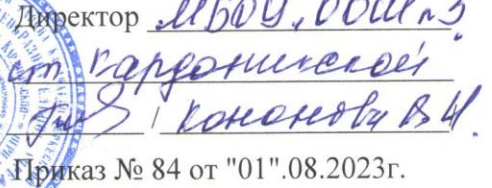 Директор МБОУ "ООШ №3
ст. Кардоникской
Кононова В.И.
Приказ № 84 от "01".08.2023г.